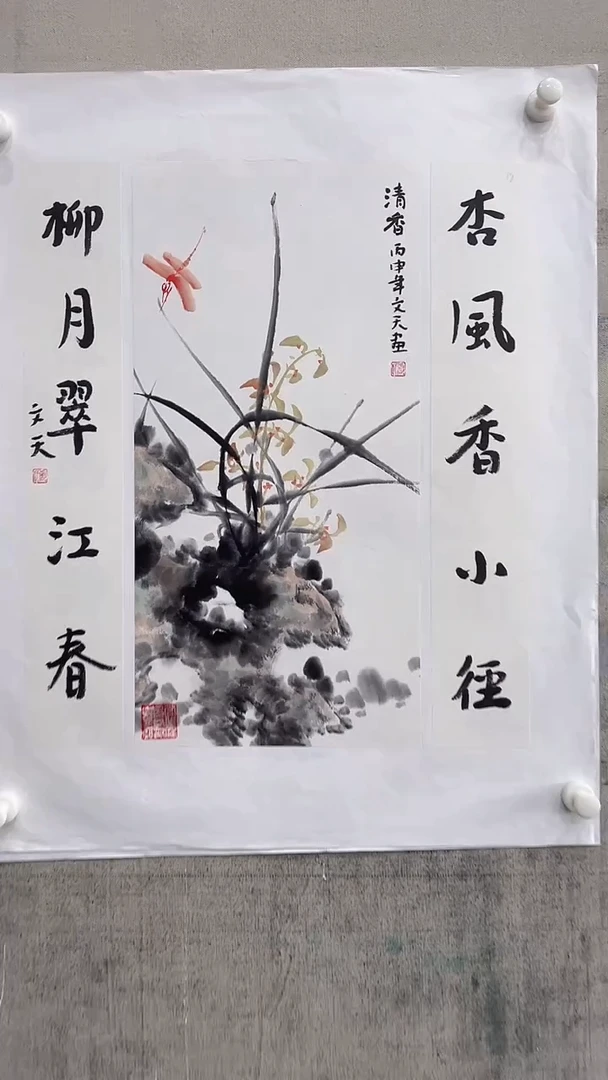 杏風香小徑
清香丙申年文天画
柳月翠江春
文天